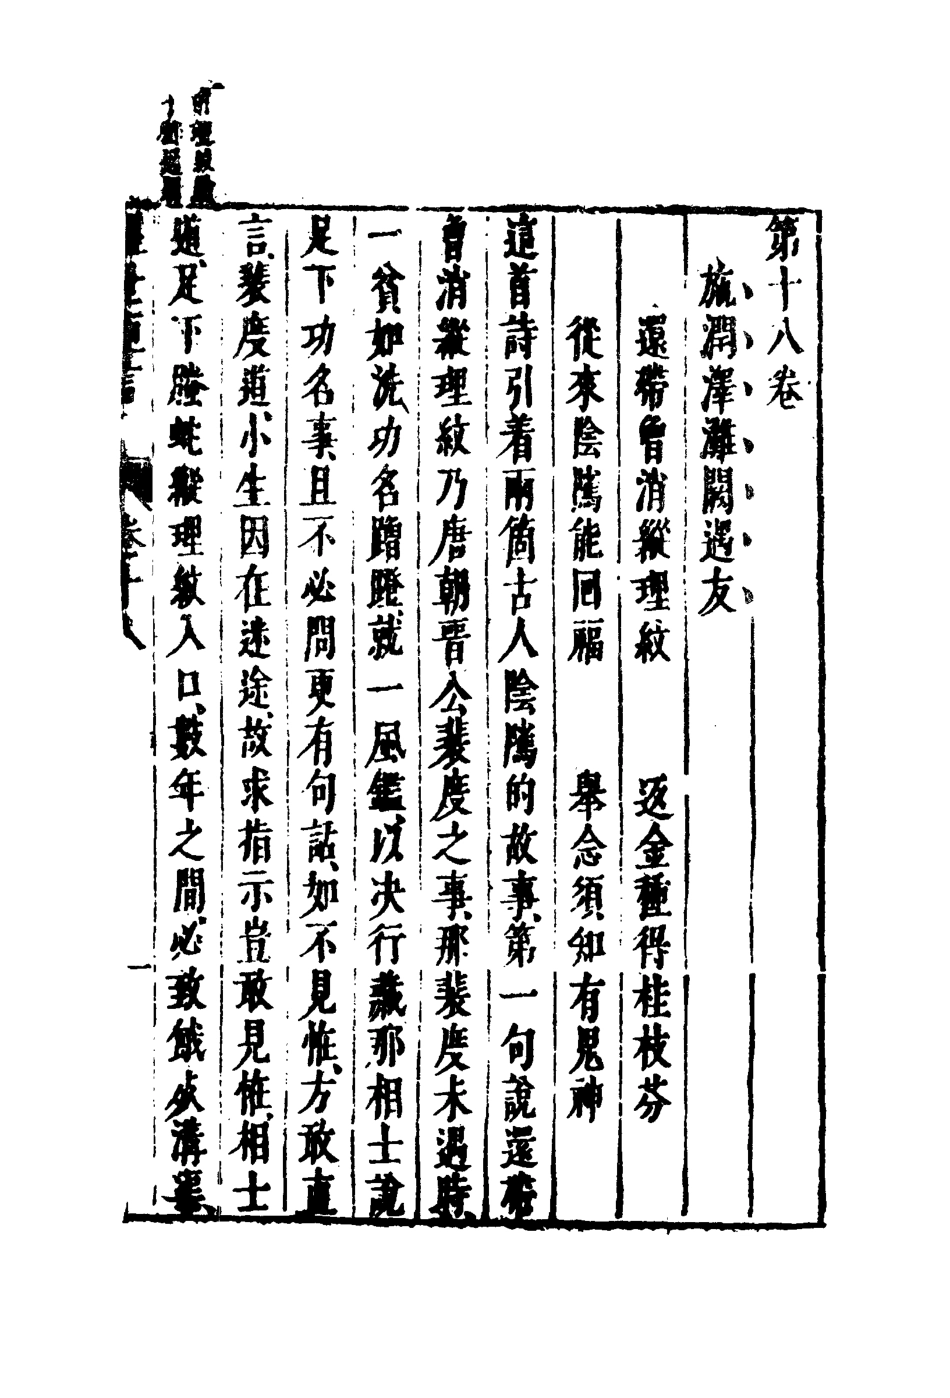 第十八卷
施潤澤灘闕遇友
還帶曾消縱理紋　返金種得桂枝芬
從來陰隲能回福　舉念須知有鬼神
這首詩引着兩箇古人陰隲的故事、第一句說還帶
曾消縱理紋乃唐朝晉公裴度之事、那裴度未遇時、
一貧如洗、功名蹭蹬、就一風鑑、以决行藏、那相士說
足下功名事、且不必問、更有句話、如不見恠、方敢直
言、裴度道、小生因在迷途、故求指示、豈敢見恠、相士
道、足下螣蛇縱理紋入口、數年之間、必致餓死溝壑、
醒世恒言　卷十八　一